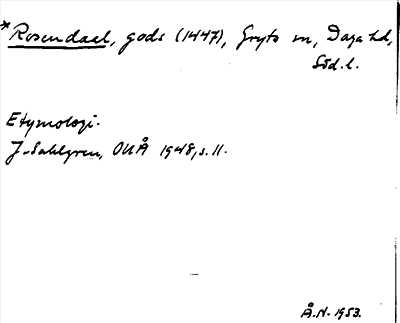 *Rosendael, gods (1447), Gryts sn, Daga hd,
Söd. l.
Etymologi.
J. Sahlgren, OUÅ 1948, s. 11.
Å.N. 1953.